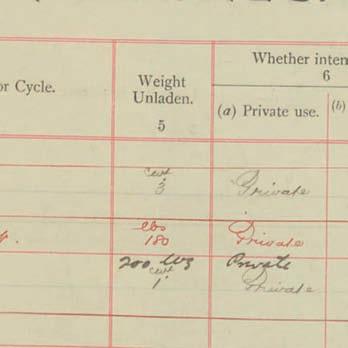 Whether inten
6
or Cycle.
Weight
Unladen.
5
(a) Private use.
(b)
cwt
3
Private
lbs
180
Private
200 lbs
Private
cwt
1
Private